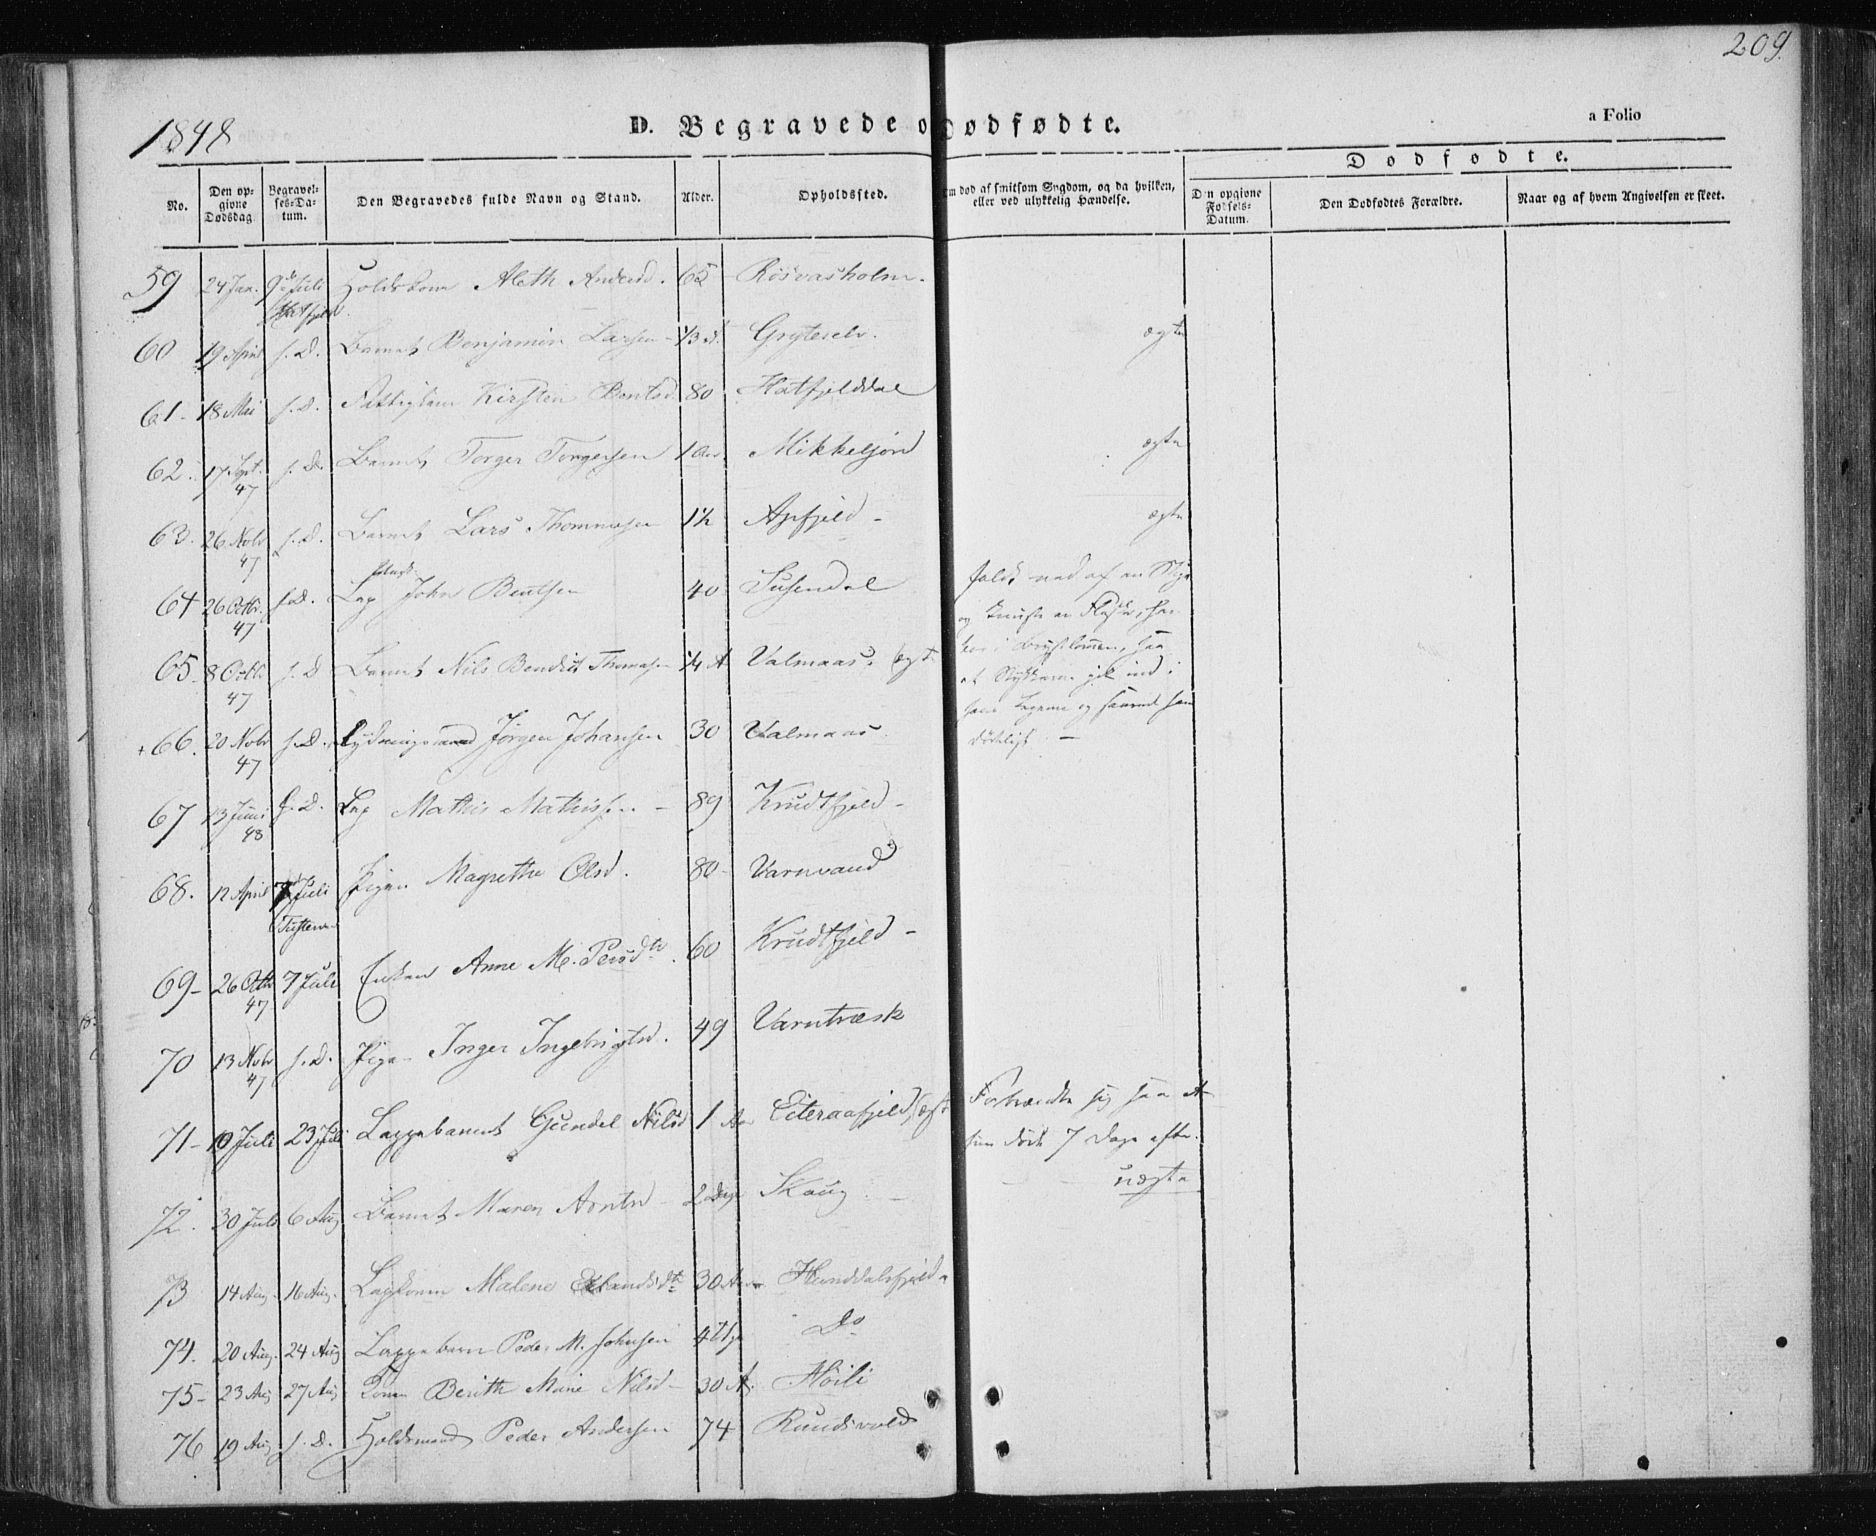 209.
1848
D. Begravede o Dødfødte.
a Folio
Dødfødte.
No.
Den opgivne Dødsdag
Begravelses-Datum.
Den Begravedes fulde Navn og Stand.
Alder.
Opholdssted.
Om død af smitsom Sygdom, og da hvilken, eller ved ulykkelig Hændelse.
Den opgivne Fødsels-Datum.
Den Dødfødtes Forældre.
Naar og af hvem Angivelsen er skeet.
59 24 Jan. 9de Juli Hatfjeld Holdskone Aleth Andersd. 65 Rösvasholm.
60 19 April s. D. Barnet Benjamin Larsen - 1/3 Gryteselv. ægte
61- 18 Mai s. D. Kirsten Bentsd 80 Hatfjelddal
62. 17 Sept. 47 s. D. Barnet Torger Torgersen 1 Aar Mikkeljord ægte
63. 26 Nobr 47 s. D. Barnet Lars Thommasen 1½ Apfjeld - ægte
64 26 Octbr. 47 s. D. Lap John Bentsen 40 Susendal faldt ned af en
og knuste en Flaske, han
bar i Brystlommen, saa
at Stykkerne gik ind i
hans Legeme og saarede ham
dødeligt -
65. 8 Octbr 47 s. D Barnet Nils Bendict Thomasen ¼ A Valmaas. ægte
+ 66. 20 Nobr 47 s. D. Rydningsmand Jörgen Johansen 30 Valmaas
67 13 Juni 48 s. D. Lap Mathis Mathissen - 89 Krudtfjeld -
68. 12 April 7 Juli Pigen Magrethe Olsd. 80- Varnvand
69- 26 Octbr 47 7 Juli Enken Anne M. Persdtr. 60 Krudtfjeld -
70 13 Nobr 47 s. D. Pigen Inger Ingebrigtsd. 49 Varntræsk
71- 10 Juli 23 Juli Lappebarnet Gundel Nilsd 1 Aar Eiteraafjeld, ægte saa at
hun døde 7 Dage efter.
72. 30 Juli 6 Aug Barnet Maren Arntsd - 2 Dage Skaug - uægte
73 14 Aug 16 Aug. Lapkonen Malene Erlandsdtr 30 Aar Hunddalsfjeld
74. 20 Aug. 24 Aug Lappebarn Peder M. Johnsen 4 Do
75- 23 Aug 27 Aug Konen Berith Marie Nilsd - 30 A. Höili
76 19 Aug s. D. Holdsmand Peder Andersen 74 Rundsvold